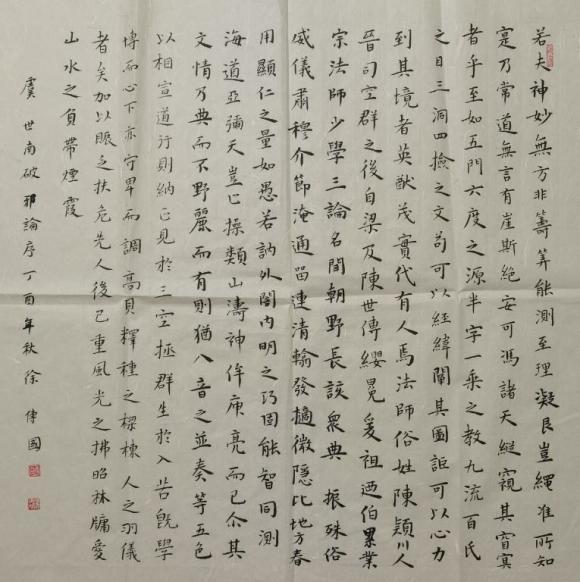 若夫神妙無方非籌筭能測至理凝豈繩准所知
寔乃常道無言有崖斯絕安可馮諸天縱窺其窅冥
者乎至如五門六度之源半字一乘之教九流百氏
之目三洞四撿之文苟可以經緯闡其圖詎可以心力
到其境者英猷茂實代有人焉法師俗姓陳潁川人
晉司空群之後自梁及陳世傳纓冕爰祖迺伯累業
宗法師少學三論名聞朝野長該眾典振殊俗
威儀肅穆介節淹通留連清翰發擿微隱比地方春
用顯仁之量如愚若訥外闇內明之巧固能智同測
海道亞彌天豈止操類山濤神侔庾亮而已尒其
文情乃典而不野麗而有則猶八音之並奏等五色
以相宣道行則納正見於三空拯群生於八苦既學
博而心下亦守卑而調高實釋種之樑棟人之羽儀
者矣加以賑乏扶危先人後己重風光之拂照林牖愛
山水之負帶煙霞
虞世南破邪論序丁酉年秋徐傳國